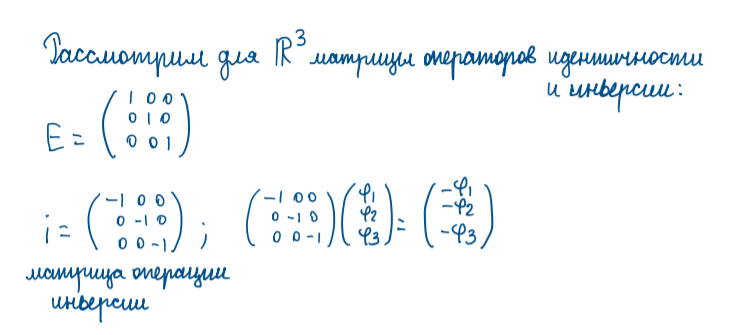 Рассмотрим для ℝ³ матрицы операторов идентичности
и инверсии:
E = ( 1 0 0
0 1 0
0 0 1 )
i = ( -1 0 0
0 -1 0
0 0 -1 ) ; ( -1 0 0
0 -1 0
0 0 -1 ) ( φ₁
φ₂
φ₃ ) = ( -φ₁
-φ₂
-φ₃ )
матрица операции
инверсии